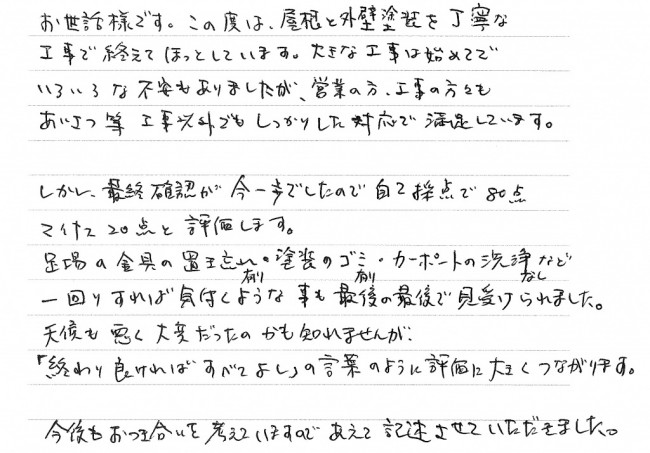 お世話様です。この度は、屋根と外壁塗装を丁寧な
工事で終えてほっとしています。大きな工事は始めてで
いろいろな不安もありましたが、営業の方、工事の方々も
あいさつ等工事以外でもしっかりした対応で満足しています。
しかし、最終確認が今一歩でしたので自己採点で80点
マイナス20点と評価します。
足場の金具の置き忘れ・塗装のゴミ・カーポートの洗浄など
有り 有り なし
一回りすれば気付くような事も最後の最後で見受けられました。
天候も悪く大変だったのかも知れませんが、
「終わり良ければすべてよし」の言葉のように評価に大きくつながります。
今後もおつき合いを考えていますのであえて記述させていただきました。